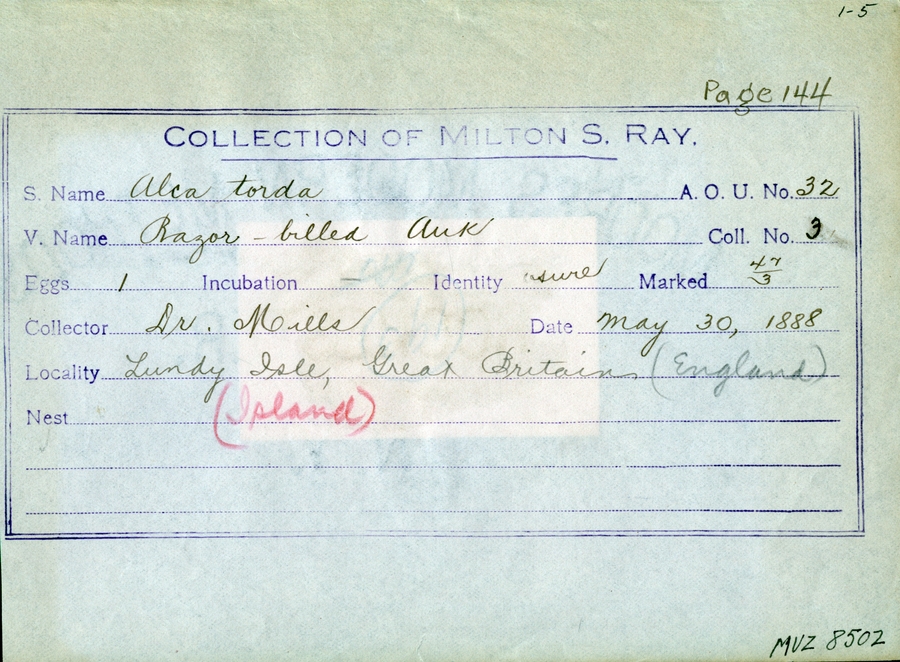 1-5
Page 144
COLLECTION OF MILTON S. RAY.
S. Name Alca torda A. O. U. No. 32
V. Name Razor-billed Auk Coll. No. 3
Eggs 1 Incubation — Identity sure Marked 47/3
Collector Dr. Mills Date May 30, 1888
Locality Lundy Isle, Great Britain (England)
Nest (Island)
MVZ 8502